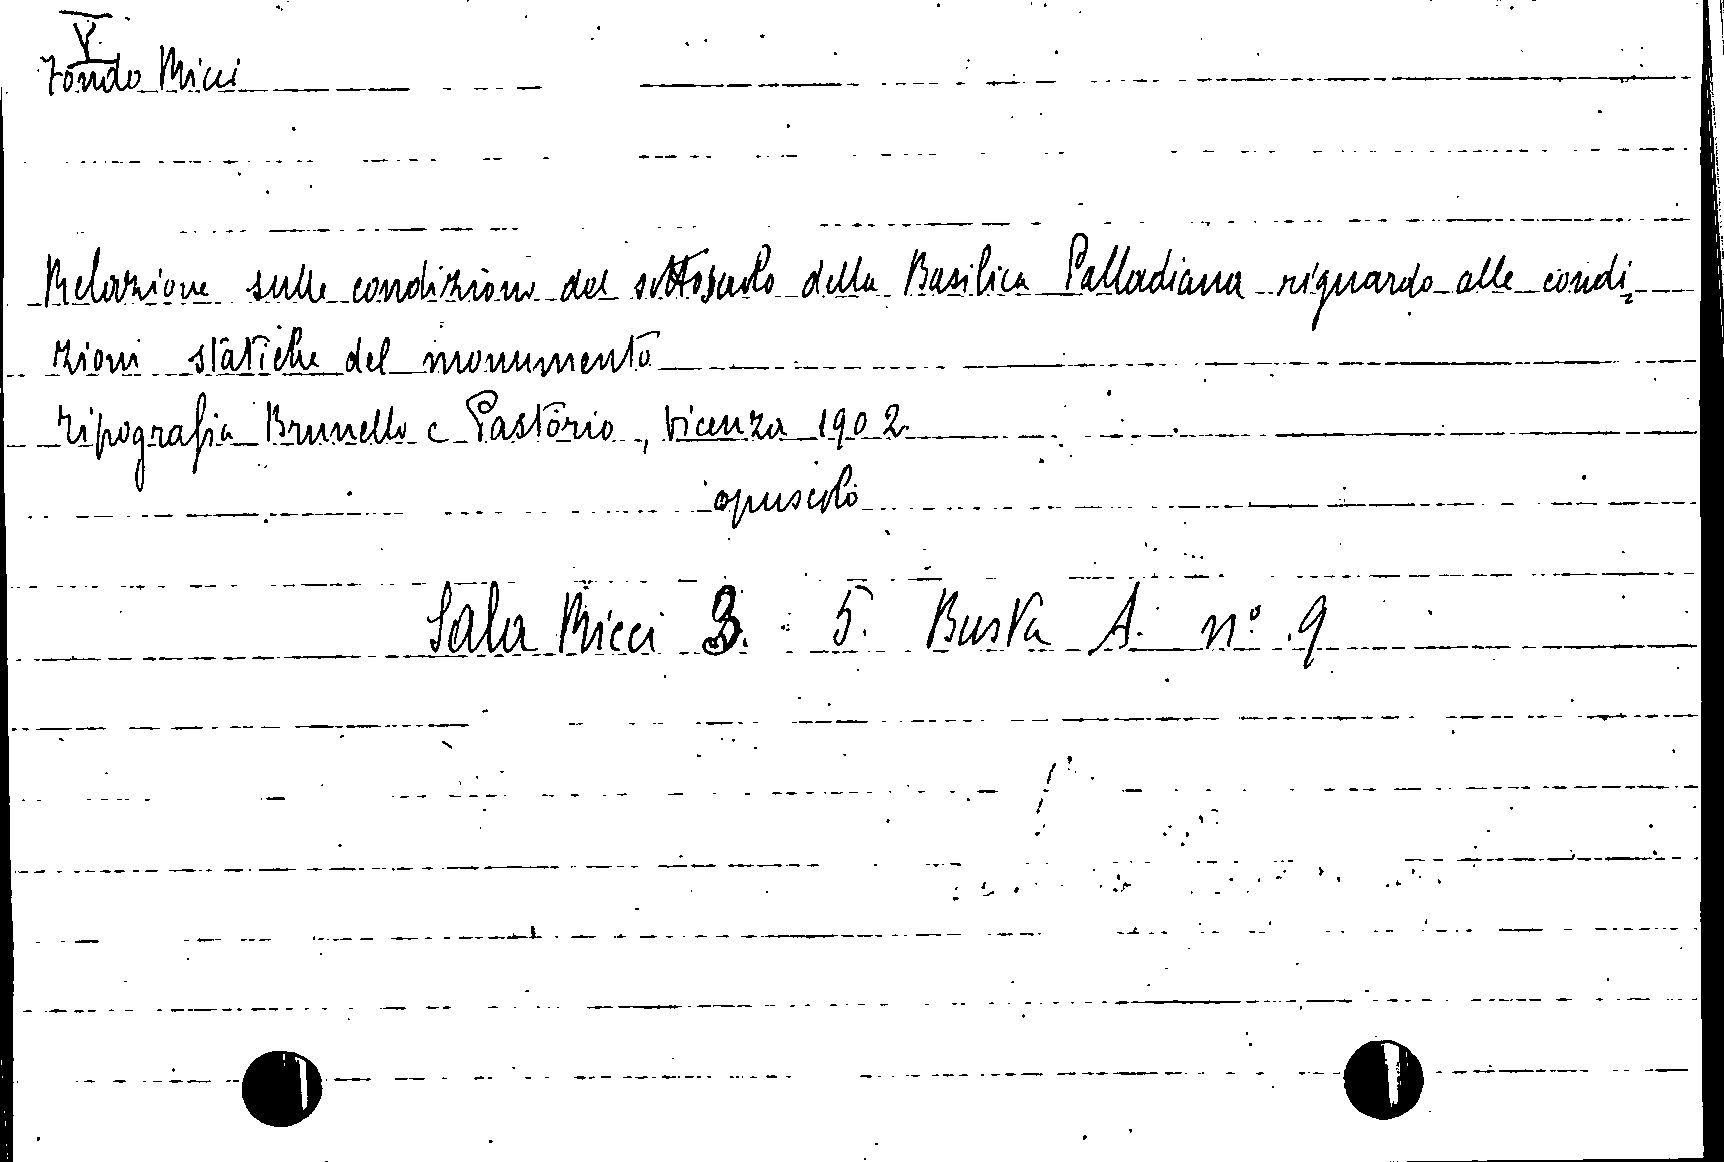 V
Fondo Ricci
Relazione sulle condizioni del sottosuolo della Basilica Palladiana riguardo alle condi,
zioni statiche del monumento
Tipografia Brunello e Pastorio, Vicenza 1902.
opuscolo
Sala Ricci 3. 5. Busta A. n° 9